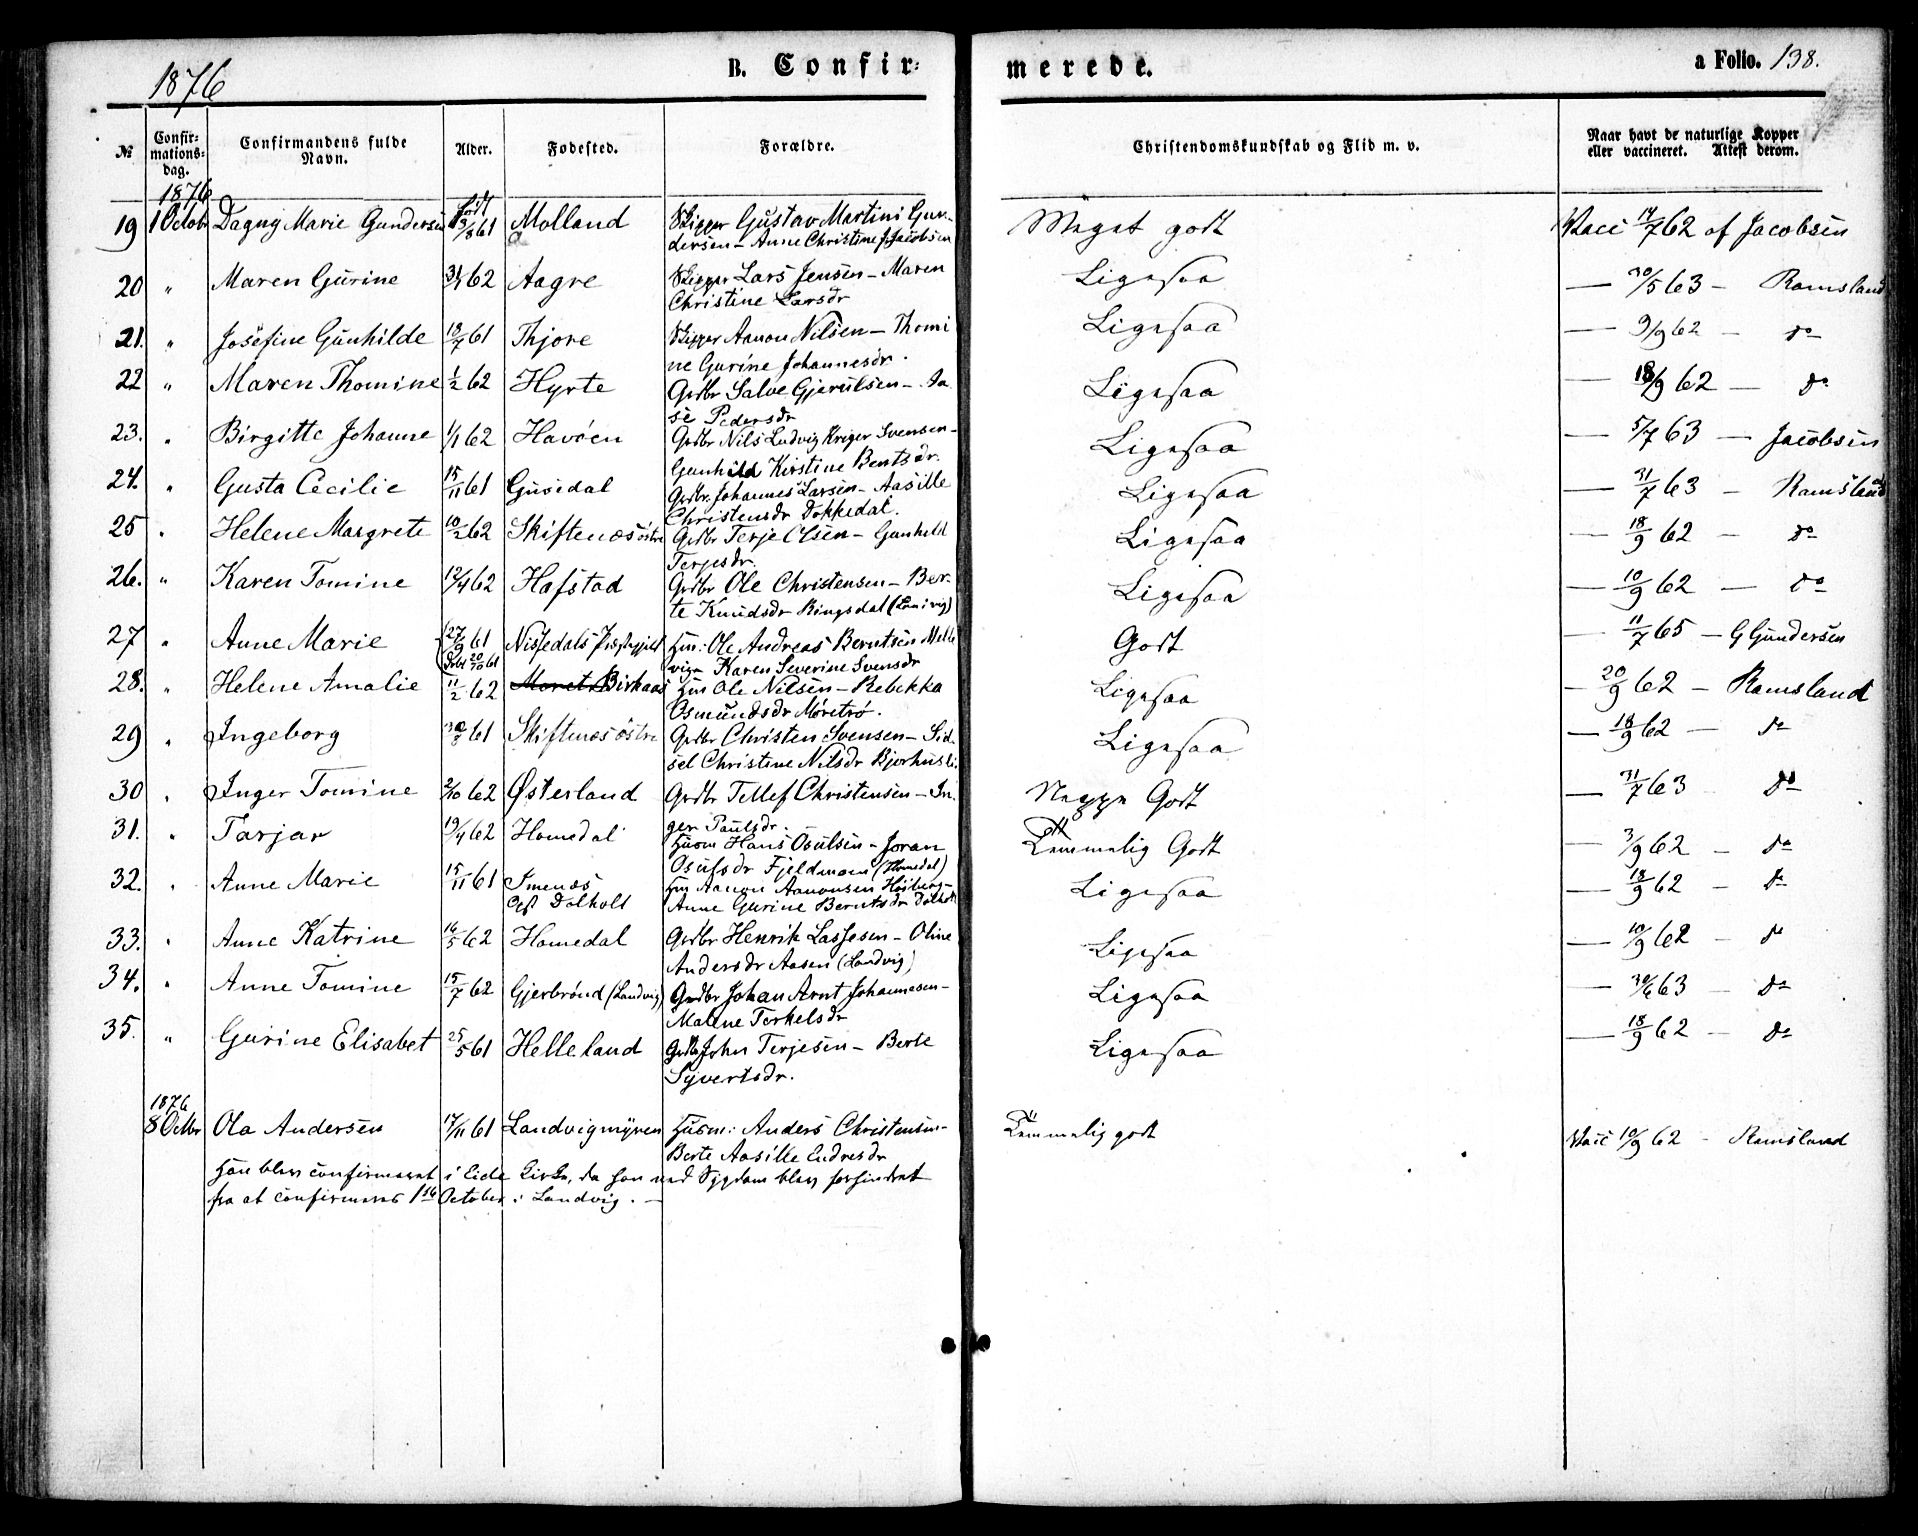 1876 B. Confir= merede. a Folio. 138.
№ Confir=mations=dag. Confirmandens fulde Navn. Alder. Fødested. Forældre. Christendomskundskab og Flid m. v. Naar havt de naturlige Kopper eller vaccineret. Attest derom.
1876 født
19 1 Octobr Dagny Marie Gundersen 13/8 61 Molland Skipper Gustav Martini Gun- Meget godt Vacc 14/7 62 af Jacobsen
dersen - Anne Christine J. Jacobsen
20 " Maren Gurine 31/1 62 Aagre Skipper Lars Jensen - Maren Ligesaa — 30/5 63 - Ramsland
Christine Larsdr
21. " Josefine Gunhilde 18/7 61 Thjore Skipper Aanon Nilsen - Thomi Ligesaa — 9/9 62 - do
ne Gurine Johannesdr.
22 " Maren Thomine 1/2 62 Hyrte Grdbr Salve Gjerulsen - Aa Ligesaa — 18/9 62 — do
se Pedersdr
23. " Birgitte Johanne 1/1 62 Havöen Grdbr Nils Ludvig Kriger Svensen - Ligesaa — 5/7 63 — Jacobsen
Gunhild Kirstine Bentsdr.
24. " Gusta Cecilie 15/11 61 Gusedal Grdbr. Johannes Larsen - Aasille Ligesaa — 31/7 63 - Ramsland
Christensdr Dokkedal.
25 " Helene Margrete 10/2 62 Skiftenæs östre Grdbr Terje Olsen - Gunhild Ligesaa — 18/9 62 - do
Terjesdr.
26. " Karen Tomine 12/4 62 Hafstad Grdbr Ole Christensen - Ber- Ligesaa — 10/9 62 - do
te Knudsdr Ringsdal (Landvig)
27 " Anne Marie 27/9 61 Nissedals Præstegjeld Hm: Ole Andreas Berntsen Molle Godt — 11/7 65 - G Gundersen
Døbt 20/10 61 vig - Karen Severine Svensdr
28. " Helene Amalie 11/2 62 Birkaas Hm Ole Nilsen - Rebekka Ligesaa — 20/9 62 - Ramsland
Osmundsdr Möretrö.
29 " Ingeborg 30/8 61 Skiftenæs östre Grdbr Christen Svensen - Sid- Ligesaa — 18/9 62 - do
sel Christine Nilsdr Bjorhusli.
30 " Inger Tomine 2/10 62 Østerland Grdbr Tellef Christensen - In- Neppe Godt — 31/7 63 do
ger Paulsdr.
31. " Tarjar 19/4 62 Homedal Husm Hans Osulsen - Joran Temmelig Godt — 3/9 62 - do
Osulsdr Fjeldmoen (Homedal)
32. " Anne Marie 15/11 61 Imenæs Hm Aanon Aanonsen Hösburg - Ligesaa — 18/9 62 - do
Opf Dolholt Anne Gurine Berntsdr Dolholt
33. " Anne Katrine 16/5 62 Homedal Grdbr Henrik Lassesen - Oline Ligesaa — 10/9 62 - do
Andersdr Aasen (Landvig)
34. " Anne Tomine 15/7 62 Gjerbrönd (Landvig) Grdbr Johan Arnt Johannesen - Ligesaa — 30/6 63 - do
Malene Terkelsdr
35. " Gurine Elisabet 25/5 61 Helleland Grdbr John Terjesen - Berte Ligesaa — 18/9 62 - do
Syvertsdr.
1876
8 Octbr Ola Andersen 17/11 61 Landvigmyren Husm: Anders Christensen - Temmelig godt Vacc 10/9 62 - Ramsland
Berte Aasille Endresdr
Han blev confirmeret i Eide Kirke, da han ved Sygdom blev forhindret
fra at confirmeres 1ste October i Landvig. —